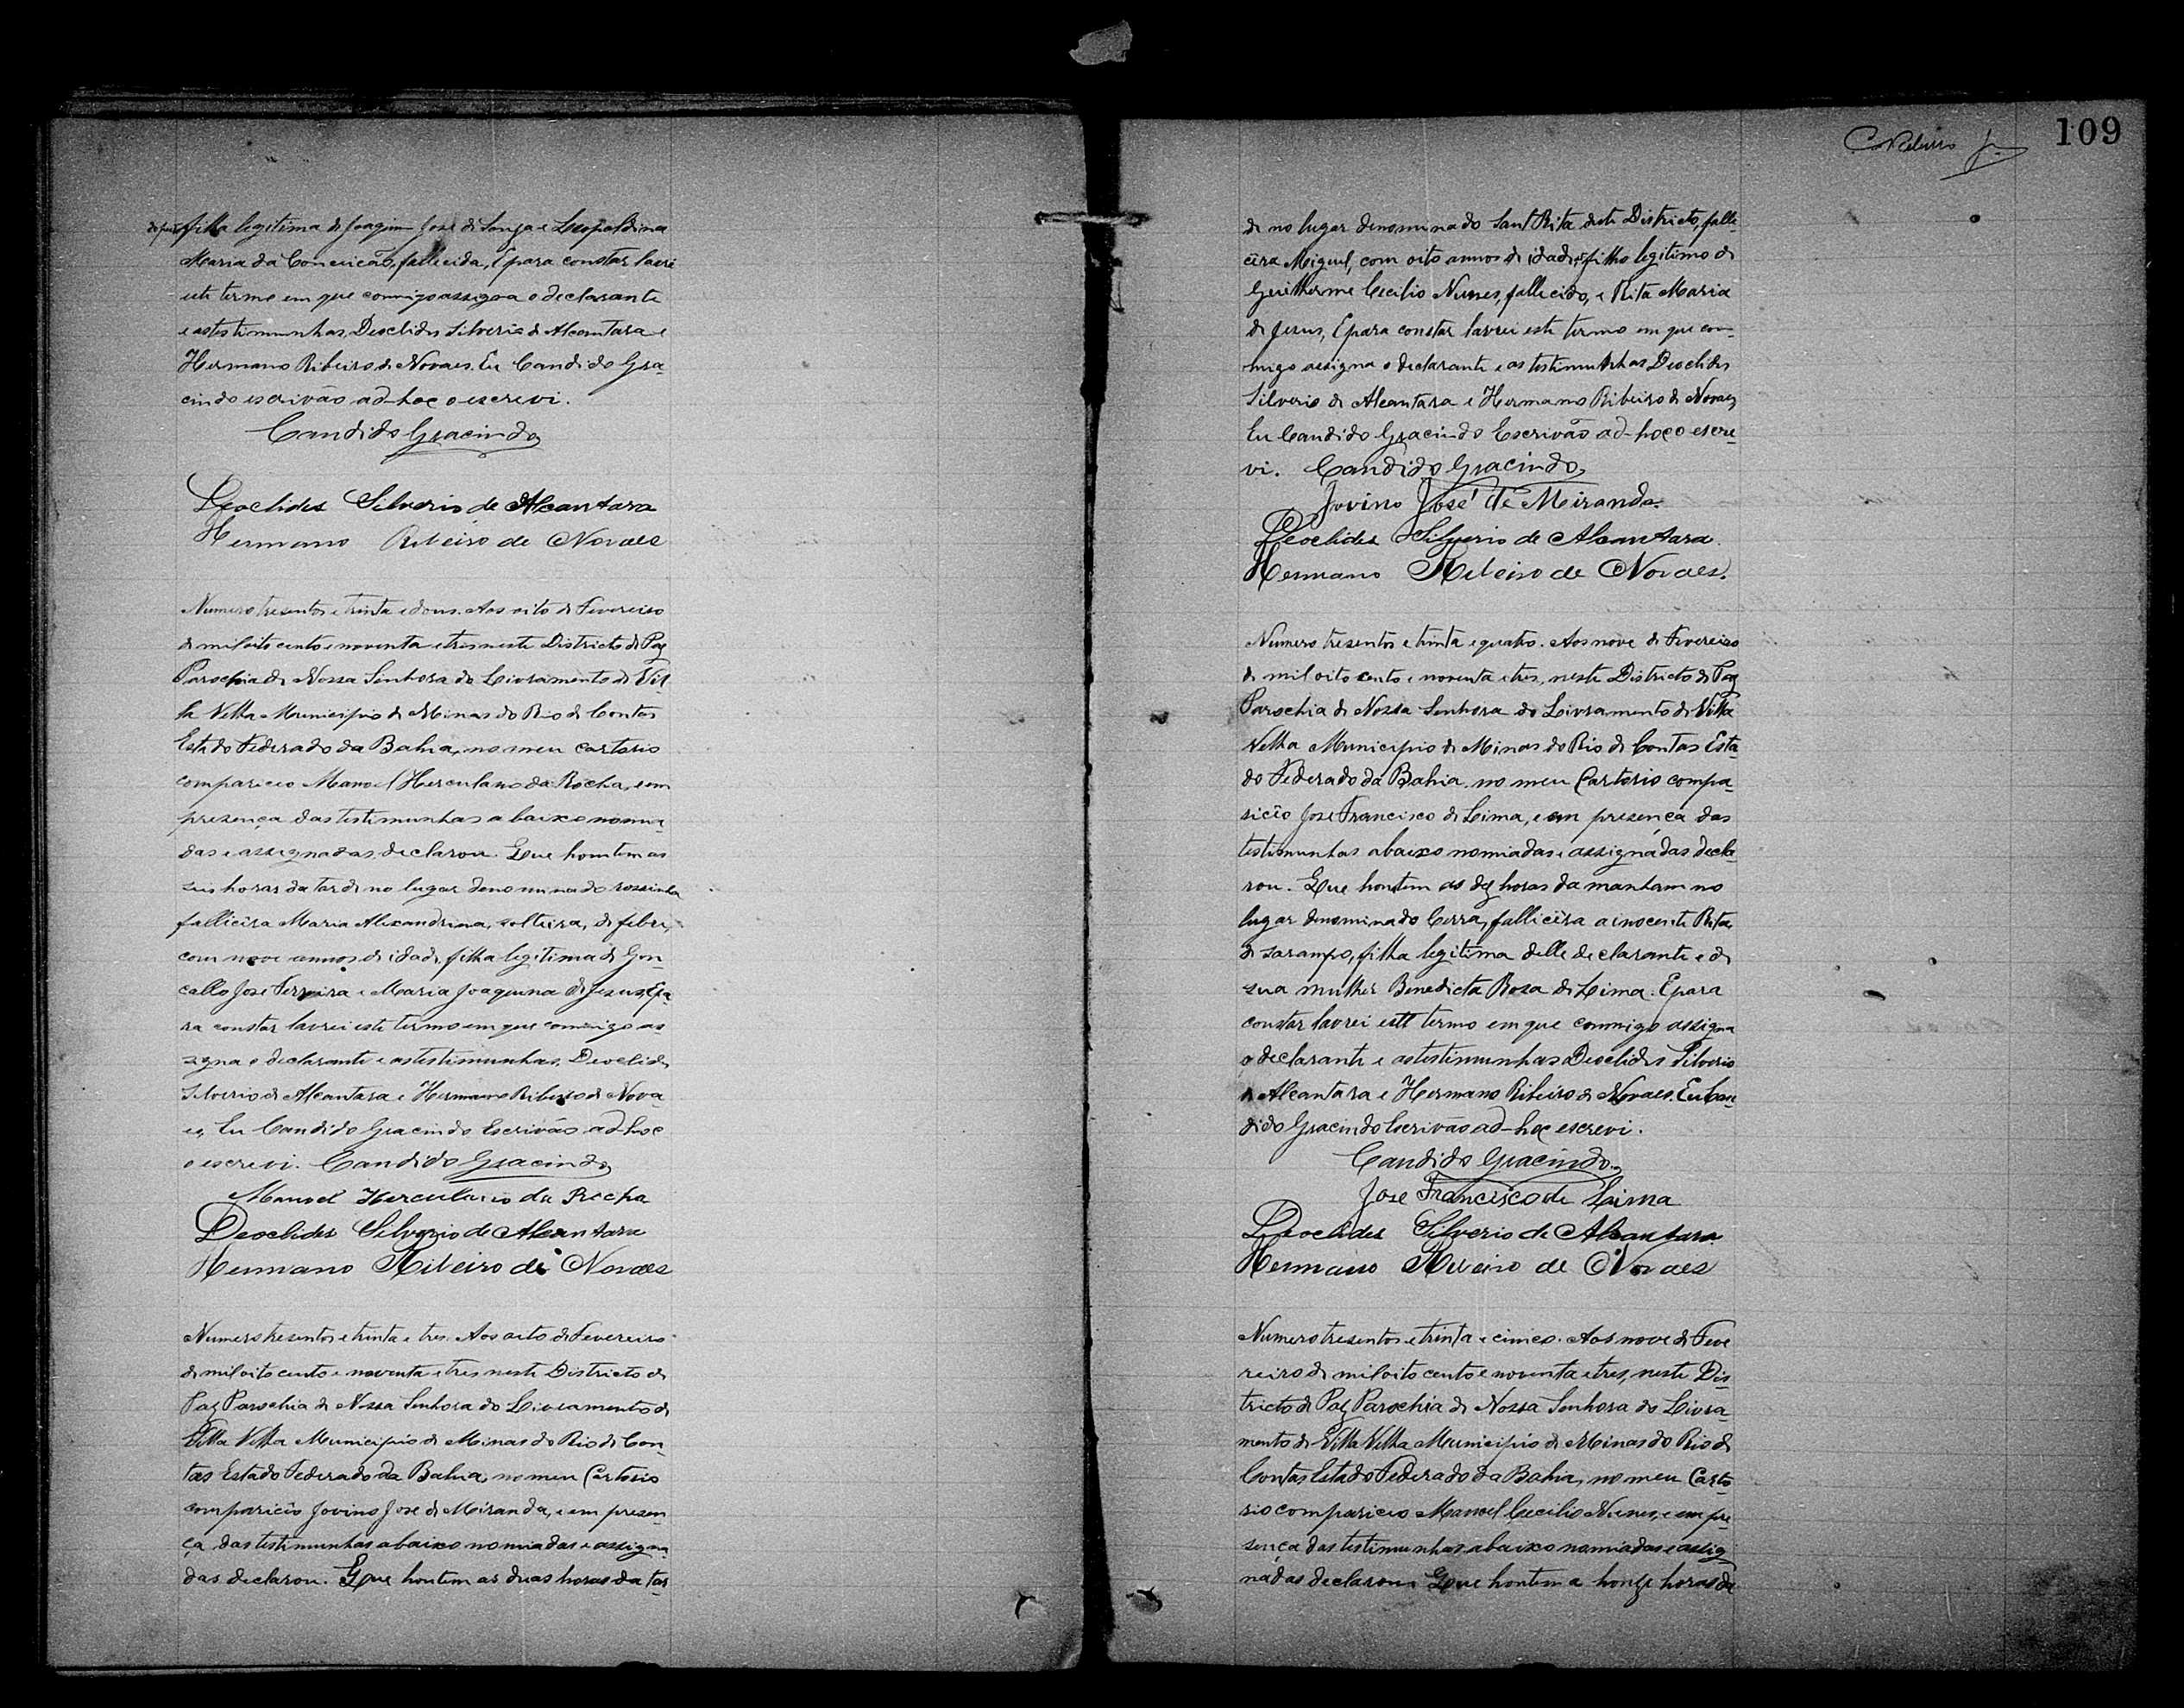 filha legitima de Joaquim José de Souza e Leopoldina
Maria da Conceicão, fallecida, E para constar lavrei
este termo em que commigo assigna o declarante
e as testimunhas, Deoclides Silverio de Alcantara e
Hermano Ribeiro de Novaes. Eu Candido Gra-
cindo escrivão ad-hoc o escrevi.
Candido Gracindo
Deoclides Silverio de Alcantara
Hermano Ribeiro de Novaes
Numero tresentos e trinta e dous. Aos oito de Fevereiro
de mil oito cento e noventa e tres neste Districto de Paz
Parochia de Nossa Senhora do Livramento de Vil
la Velha Municipio de Minas do Rio de Contas
Estado Federado da Bahia, no meu cartorio
compareceo Manoel Herculano da Rocha, e em
presença das testimunhas abaixo nomia-
das e assignadas, declarou. Que hontem as
seis horas da tarde no lugar denominado rossinha
fallicêra Maria Alexandrina, solteira, de febre,
com nove annos de idade, filha legitima de Gon
callo José Ferreira e Maria Joaquina de Jesus, E pa
ra constar lavrei este termo em que commigo as
signa o declarante e as testimunhas. Deoclides
Silverio de Alcantara e Hermano Ribeiro de Nova-
es, Eu Candido Gracindo Escrivão ad-hoc
o escrevi. Candido Gracindo
Manoel Herculano da Rocha
Deoclides Silverio de Alcantara
Hermano Ribeiro de Novaes
Numero tresentos e trinta e tres. Aos oito de Fevereiro
de mil oito cento e noventa e tres neste Districto de
Paz Parochia de Nossa Senhora do Livramento de
Villa Velha Municipio de Minas do Rio de Con
tas Estado Federado da Bahia, no meu Cartorio
compariceo Jovino José de Miranda, e em presen
ça das testimunhas abaixo nomiadas e assigna-
das declarou. Que hontem as duas horas da tar-
Jr.
109
de no lugar denominado Sant Rita deste Districto, falle
cêra Miguel, com oito annos de idade, filho legitimo de
Guilherme Cecilio Nunes, fallecido, e Rita Maria
de Jesus, E para constar lavrei este termo em que com-
migo assigna o declarante e as testimunhas Deoclides
Silverio de Alcantara e Hermano Ribeiro de Novaes,
Eu Candido Gracindo Escrivão ad-hoc o escre-
vi. Candido Gracindo,
Jovino José de Miranda.
Deoclides Silverio de Alcantara.
Hermano Ribeiro de Novaes.
Numero tresentos e trinta e quatro. Aos nove de Fevereiro
de mil oito cento e noventa e tres, neste Districto de Paz
Parochia de Nossa Senhora do Livramento de Villa
Velha Municipio de Minas do Rio de Contas Esta-
do Federado da Bahia, no meu Cartorio compa-
riceo José Francisco de Lima, e em presença das
testimunhas abaixo nomiadas e assignadas decla-
rou. Que hontem as dez horas da manham no
lugar denominado Cerra, fallicêra a inocente Rita,
de sarampo, filha legitima delle declarante e de
sua mulher Benedicta Rosa de Lima. E para
constar lavrei este termo em que commigo assigna
o declarante e as testimunhas Deoclides Silverio
de Alcantara e Hermano Ribeiro de Novaes. Eu Can-
dido Gracindo Escrivão ad-hoc escrevi.
Candido Gracindo
José Francisco de Lima
Deoclides Silverio de Alcantara.
Hermano Ribeiro de Novaes
Numero tresentos e trinta e cinco. Aos nove de Feve
reiro de mil oito cento e noventa e tres, neste Dis-
tricto de Paz Parochia de Nossa Senhora do Livra-
mento de Villa Velha Municipio de Minas do Rio de
Contas, Estado Federado da Bahia, no meu Carto-
rio compariceo Manoel Cecilio Nunes, e em pre-
sença das testimunhas abaixo nomiadas e assig-
nadas declarou. Que hontem a honze horas da